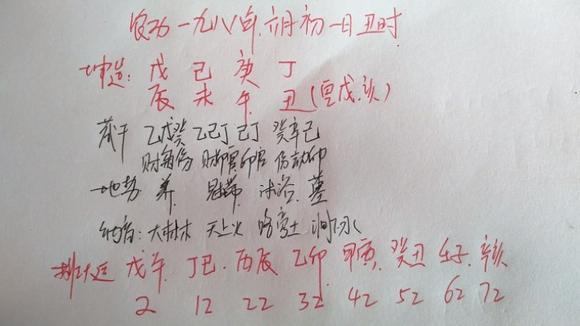 农历一九八八年六月初一日丑时
坤造: 戊 己 庚 丁
辰 未 午 丑 (空戌.亥)
藏干 乙戊癸 乙己丁 己丁 癸辛己
财枭伤 财印官 印官 伤劫印
地势 养 冠带 沐浴 墓
纳音: 大林木 天上火 路旁土 涧下水
排大运 戊午. 丁巳. 丙辰 乙卯 甲寅. 癸丑 壬子. 辛亥
2 12 22 32 42 52 62 72